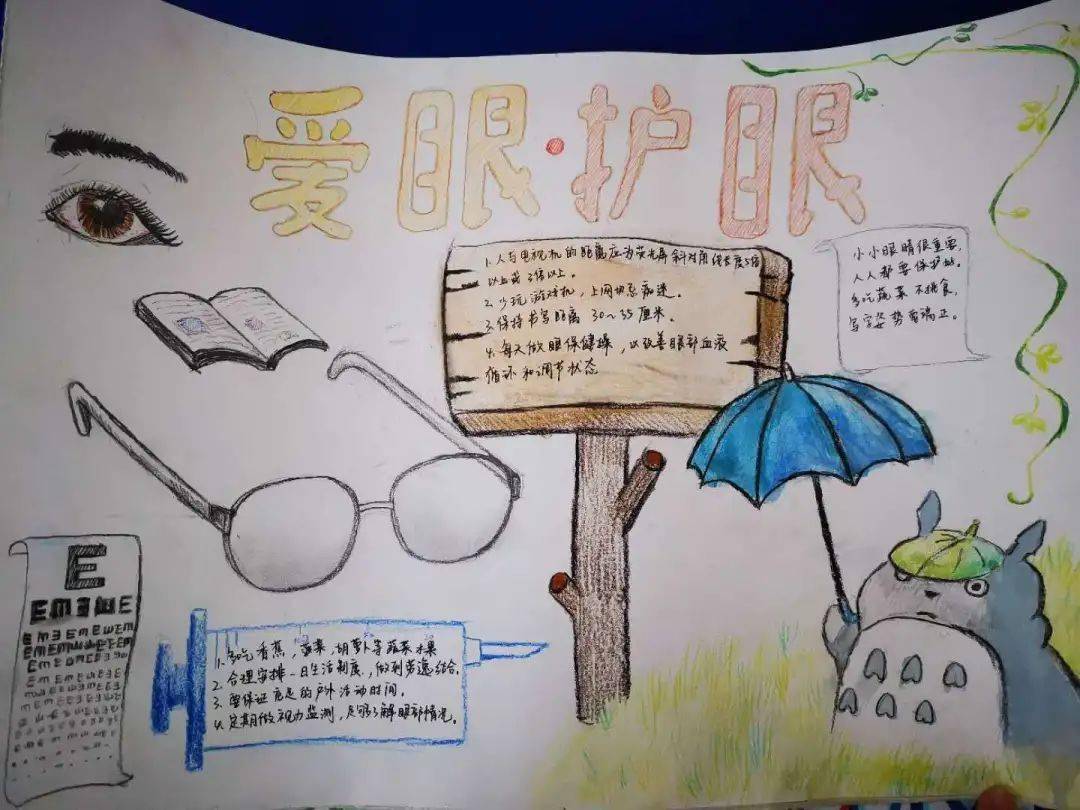 爱眼·护眼
1.人与电视机的距离应为荧光屏斜对角线长度5倍
以上或7倍以上。
2.少玩游戏机，上网切忌痴迷。
3.保持书写距离 30~35厘米。
4.每天做眼保健操，以改善眼部血液
循环和调节状态
小小眼睛很重要，
人人都要保护她。
多吃蔬菜不挑食，
写字姿势要端正。
E
E M Ǝ W E
1.多吃香蕉，菠菜，胡萝卜等蔬菜水果
2.合理安排一日生活制度，做到劳逸结合。
3.要保证充足的户外活动时间。
4.定期做视力监测，足够了解眼部情况。